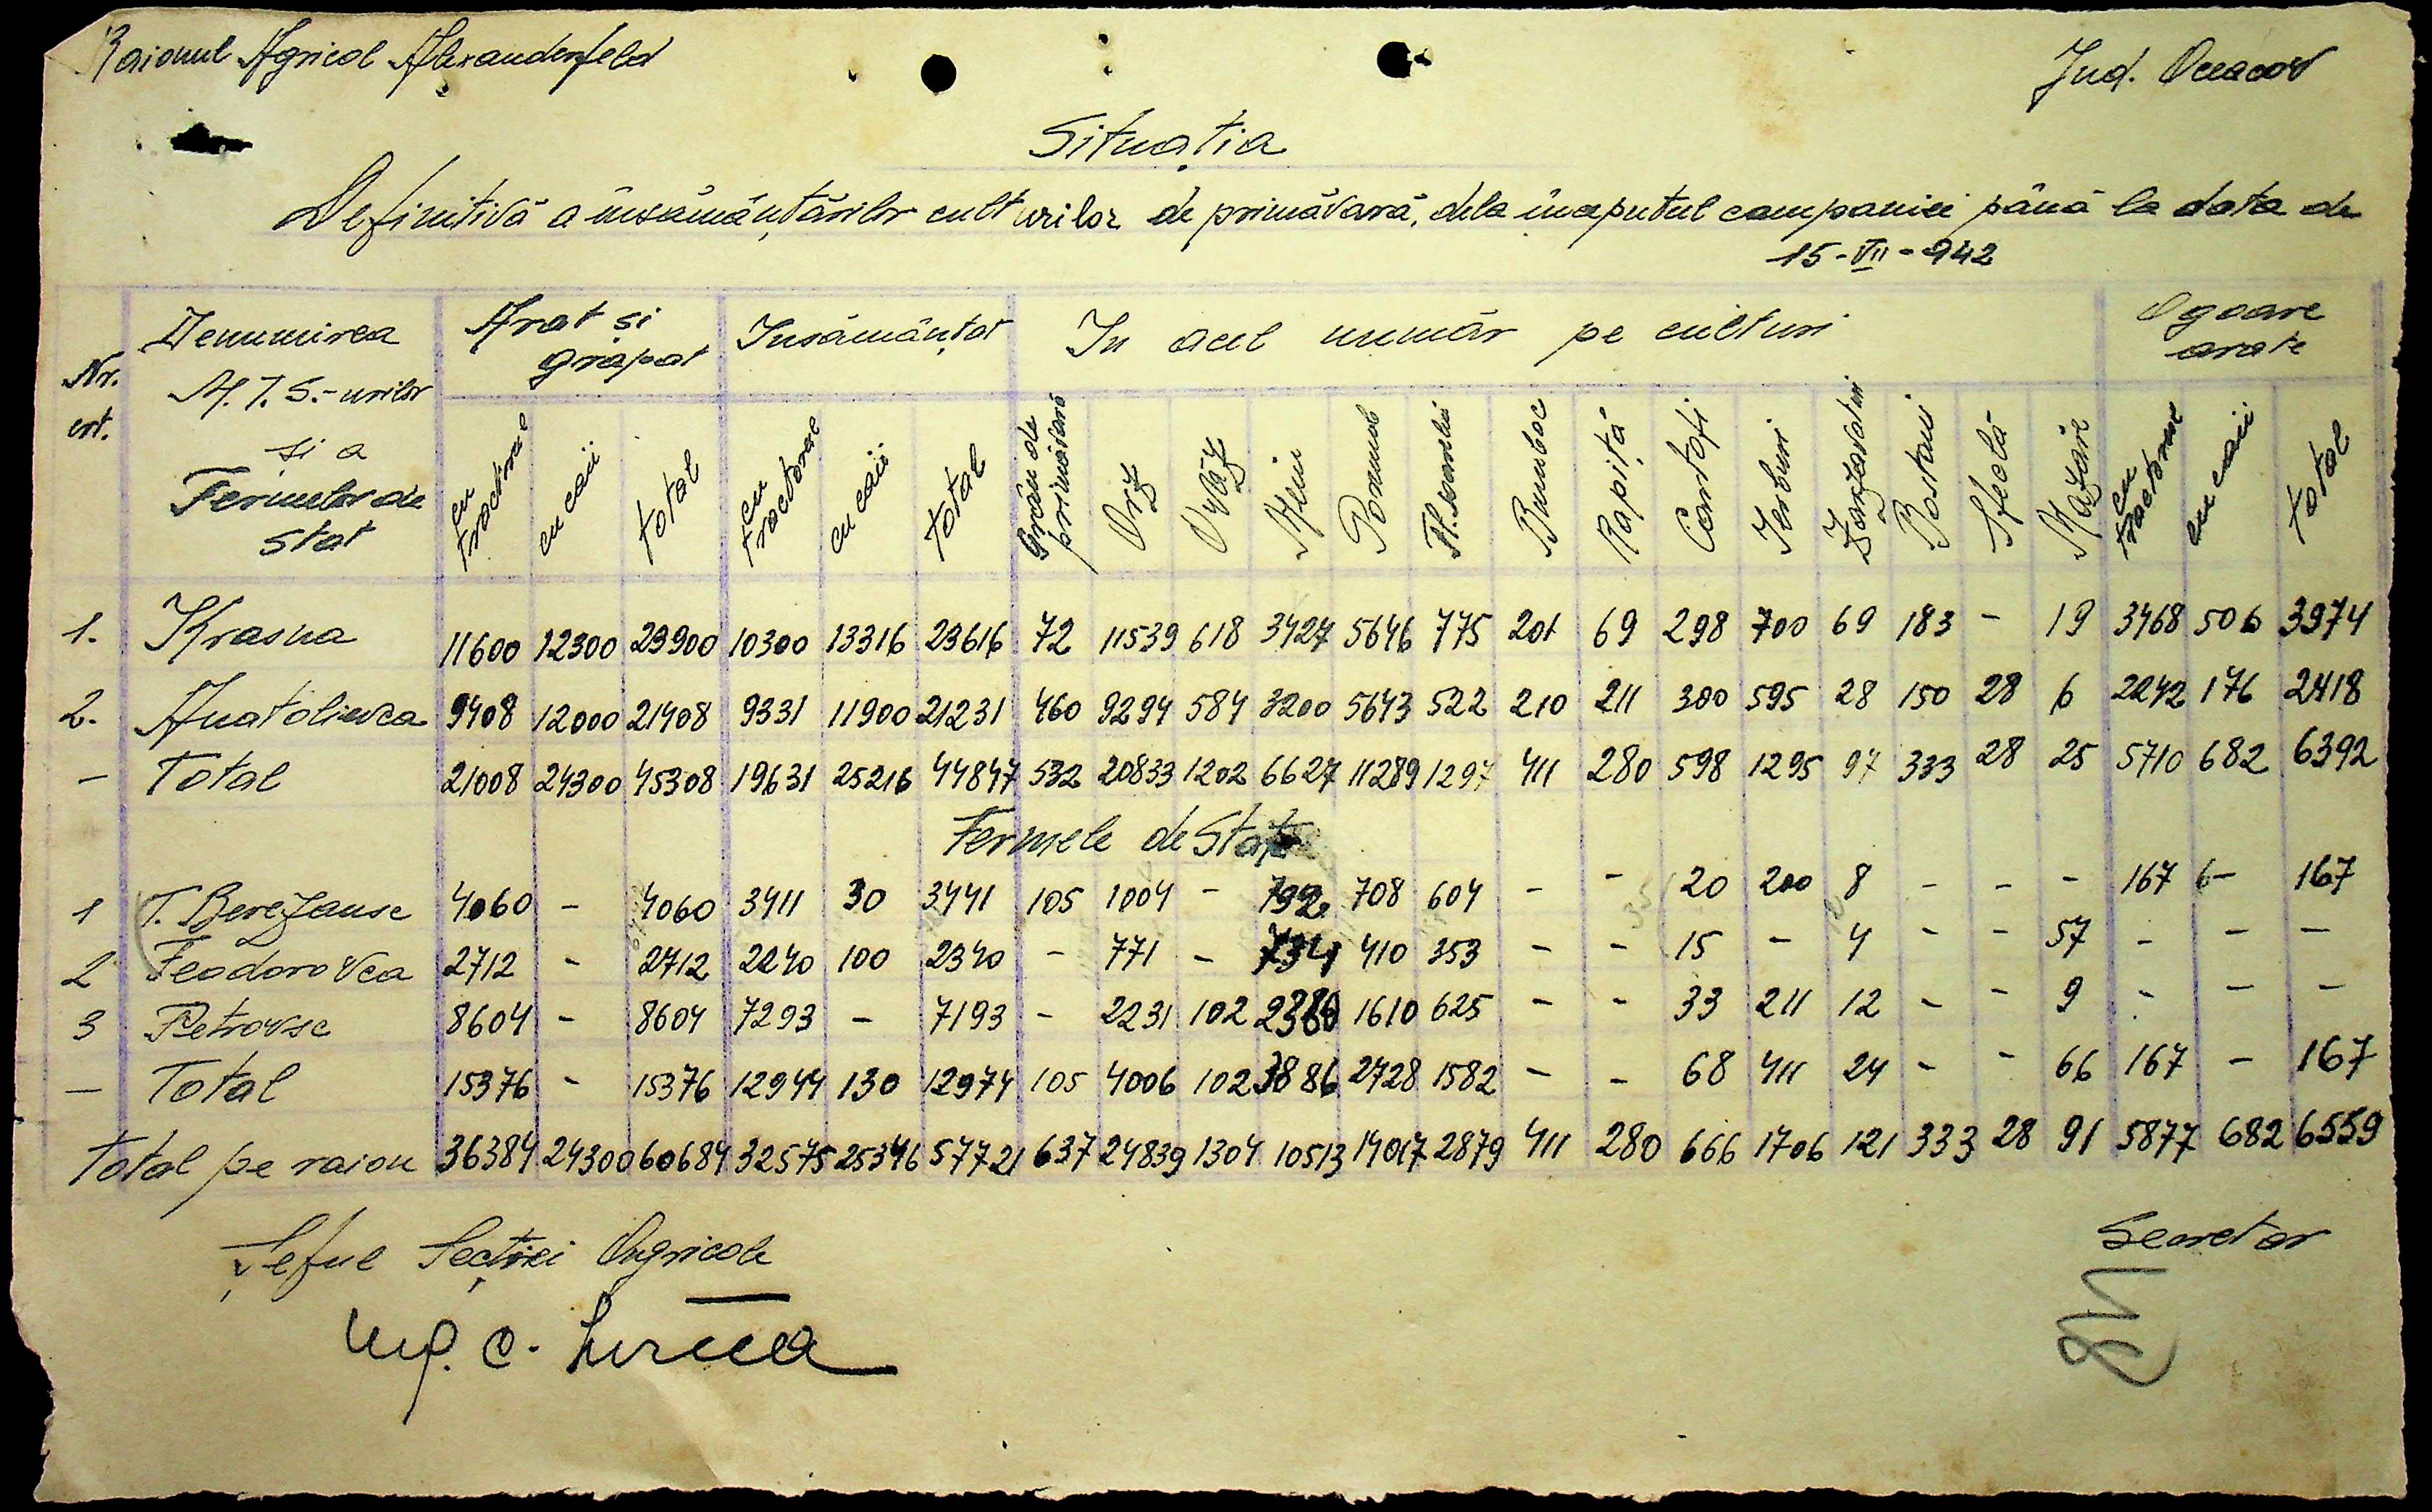 Raionul Agricol Alexandenfeld
Jud. Oceacov
Situația
Definitivă a însămânțărilor culturilor de primăvară, dela începutul campaniei până la data de
15-VII-942
Nr. crt. Denumirea M.T.S.-urilor și a Fermelor de stat Arat și grăpat Insămânțat In acel număr pe culturi Ogoare arate
cu tractorul cu caii total cu tractorul cu caii total Grâu de primăvară Orz Ovăz Meiu Porumb Fl. soarelui Bumbac Rapiță Cartofi Ierburi Zarzavaturi Bostani Sfeclă Mazăre cu tractorul cu caii total
1. Krasna 11600 12300 23900 10300 13316 23616 72 11539 618 3427 5646 775 201 69 298 700 69 183 - 19 3468 506 3974
2. Anatolievca 9408 12000 21408 9331 11900 21231 460 9294 584 3200 5643 522 210 211 300 595 28 150 28 6 2242 176 2418
- Total 21008 24300 45308 19631 25216 44847 532 20833 1202 6627 11289 1297 411 280 598 1295 97 333 28 25 5710 682 6392
Fermele de Stat
1 T. Berezansc 4060 - 4060 3411 30 3441 105 1004 - 792 708 604 - - 20 200 8 - - - 167 - 167
2 Feodorovca 2712 - 2712 2240 100 2340 - 771 - 734 410 353 - - 15 - 4 - - 57 - - -
3 Petrovsc 8604 - 8604 7293 - 7193 - 2231 102 1610 625 - - 33 211 12 - - 9 - - -
- Total 15376 - 15376 12944 130 12974 105 4006 102 3886 2728 1582 - - 68 411 24 - - 66 167 - 167
Total pe raion 36384 24300 60684 32575 25346 57721 637 24839 1304 10513 14017 2879 411 280 666 1706 121 333 28 91 5877 682 6559
Șeful Secției Agricole
Secretar
Ing. C.